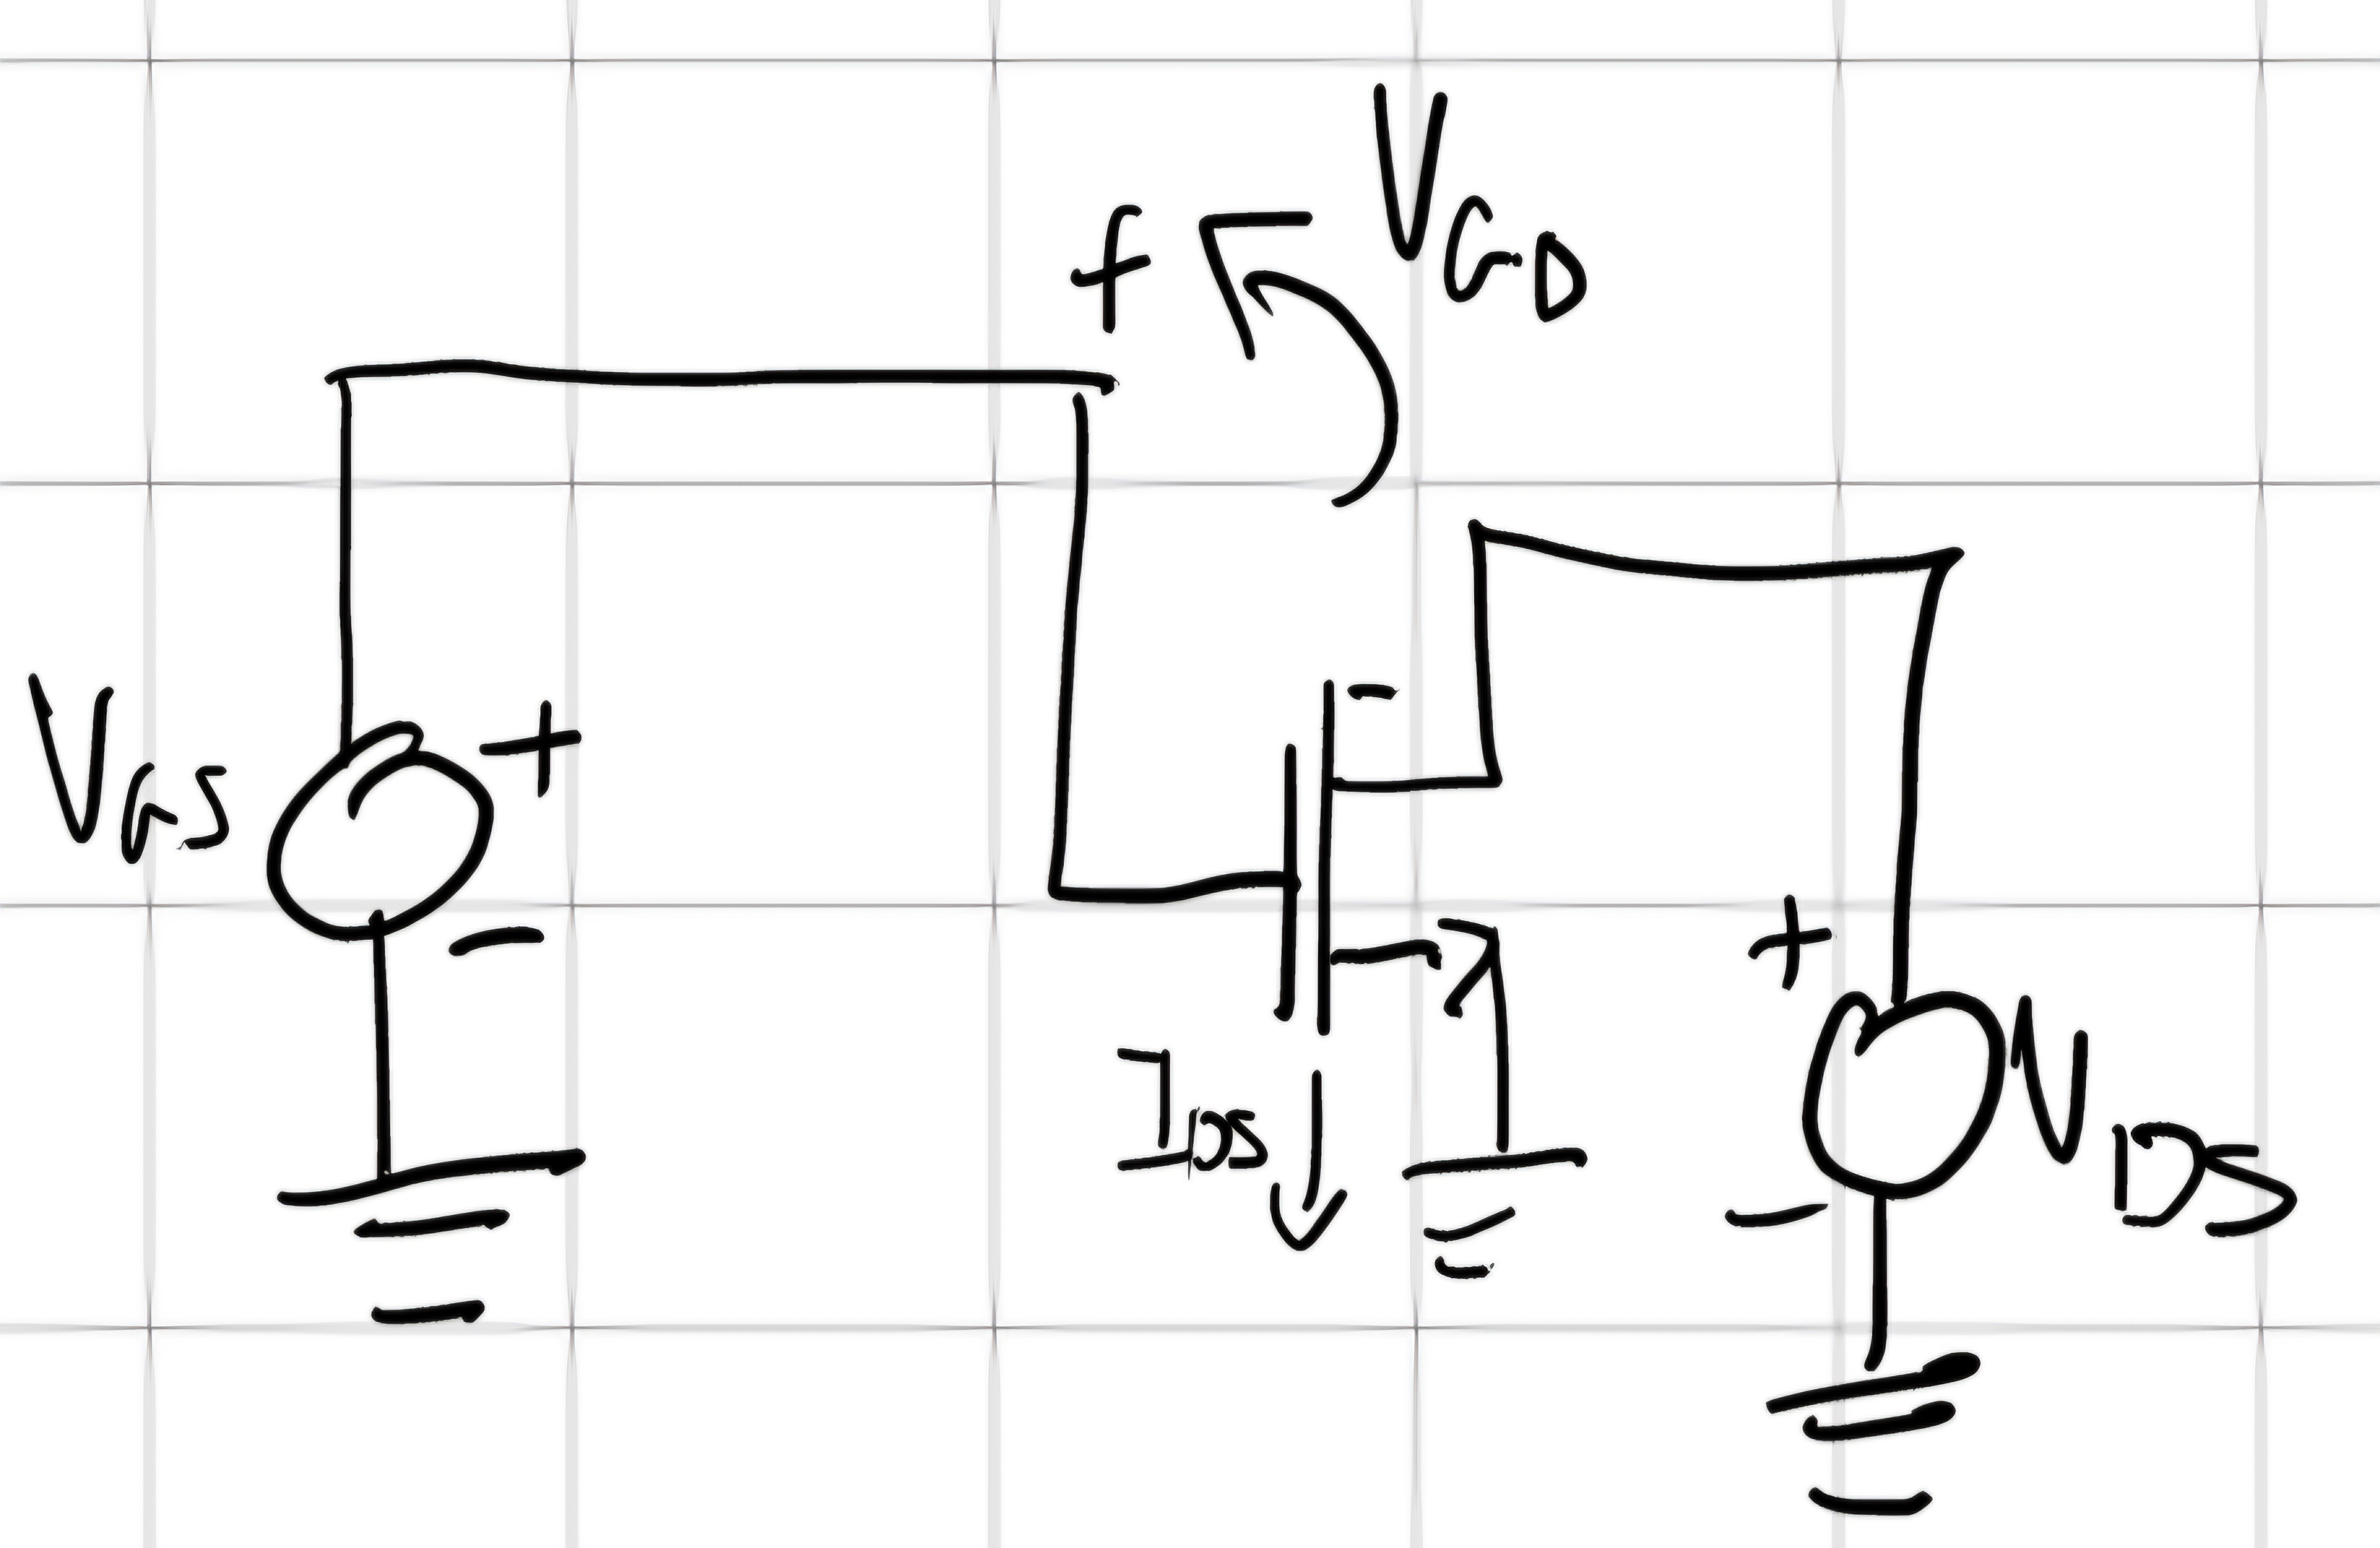 V_GD
+
V_GS
+
-
-
+
I_DS
V_DS
-